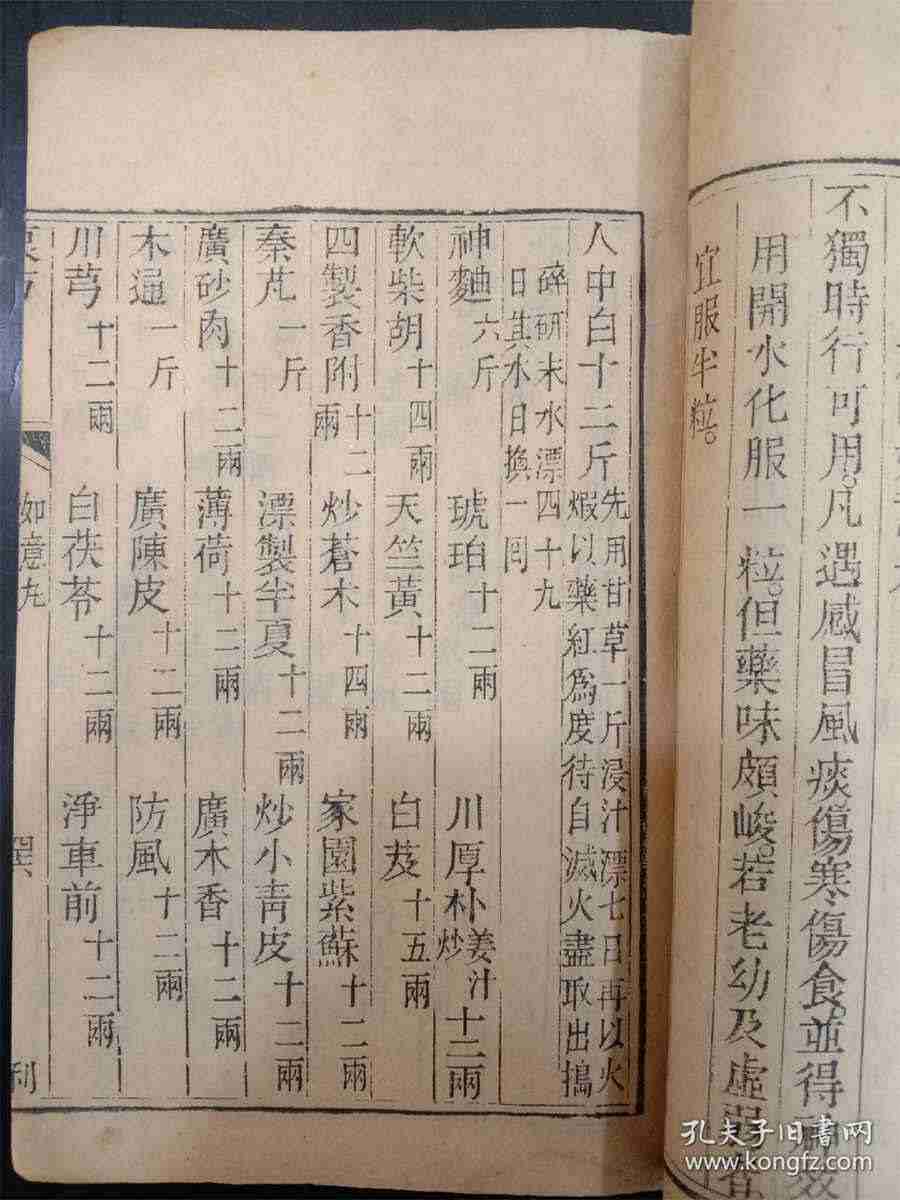 不獨時行可用。凡遇感冒風痰傷寒傷食。並得神效
用開水化服一粒。但藥味頗峻。若老幼及虛弱者
宜服半粒。
人中白十二斤 先用甘草一斤浸汁漂七日再以火
煅以藥紅為度待自滅火盡取出搗
碎研末水漂四十九
日其水日換一囘
神麯六斤 琥珀十二兩 川厚朴姜汁炒十二兩
軟柴胡十四兩 天竺黃十二兩 白芨十五兩
四製香附十二兩 炒蒼术十四兩 家園紫蘇十二兩
秦芃一斤 漂製半夏十二兩 炒小青皮十二兩
廣砂肉十二兩 薄荷十二兩 廣木香十二兩
木通一斤 廣陳皮十二兩 防風十二兩
川芎十二兩 白茯苓十二兩 淨車前十二兩
如意丸
利
孔夫子旧书网
www.kongfz.com